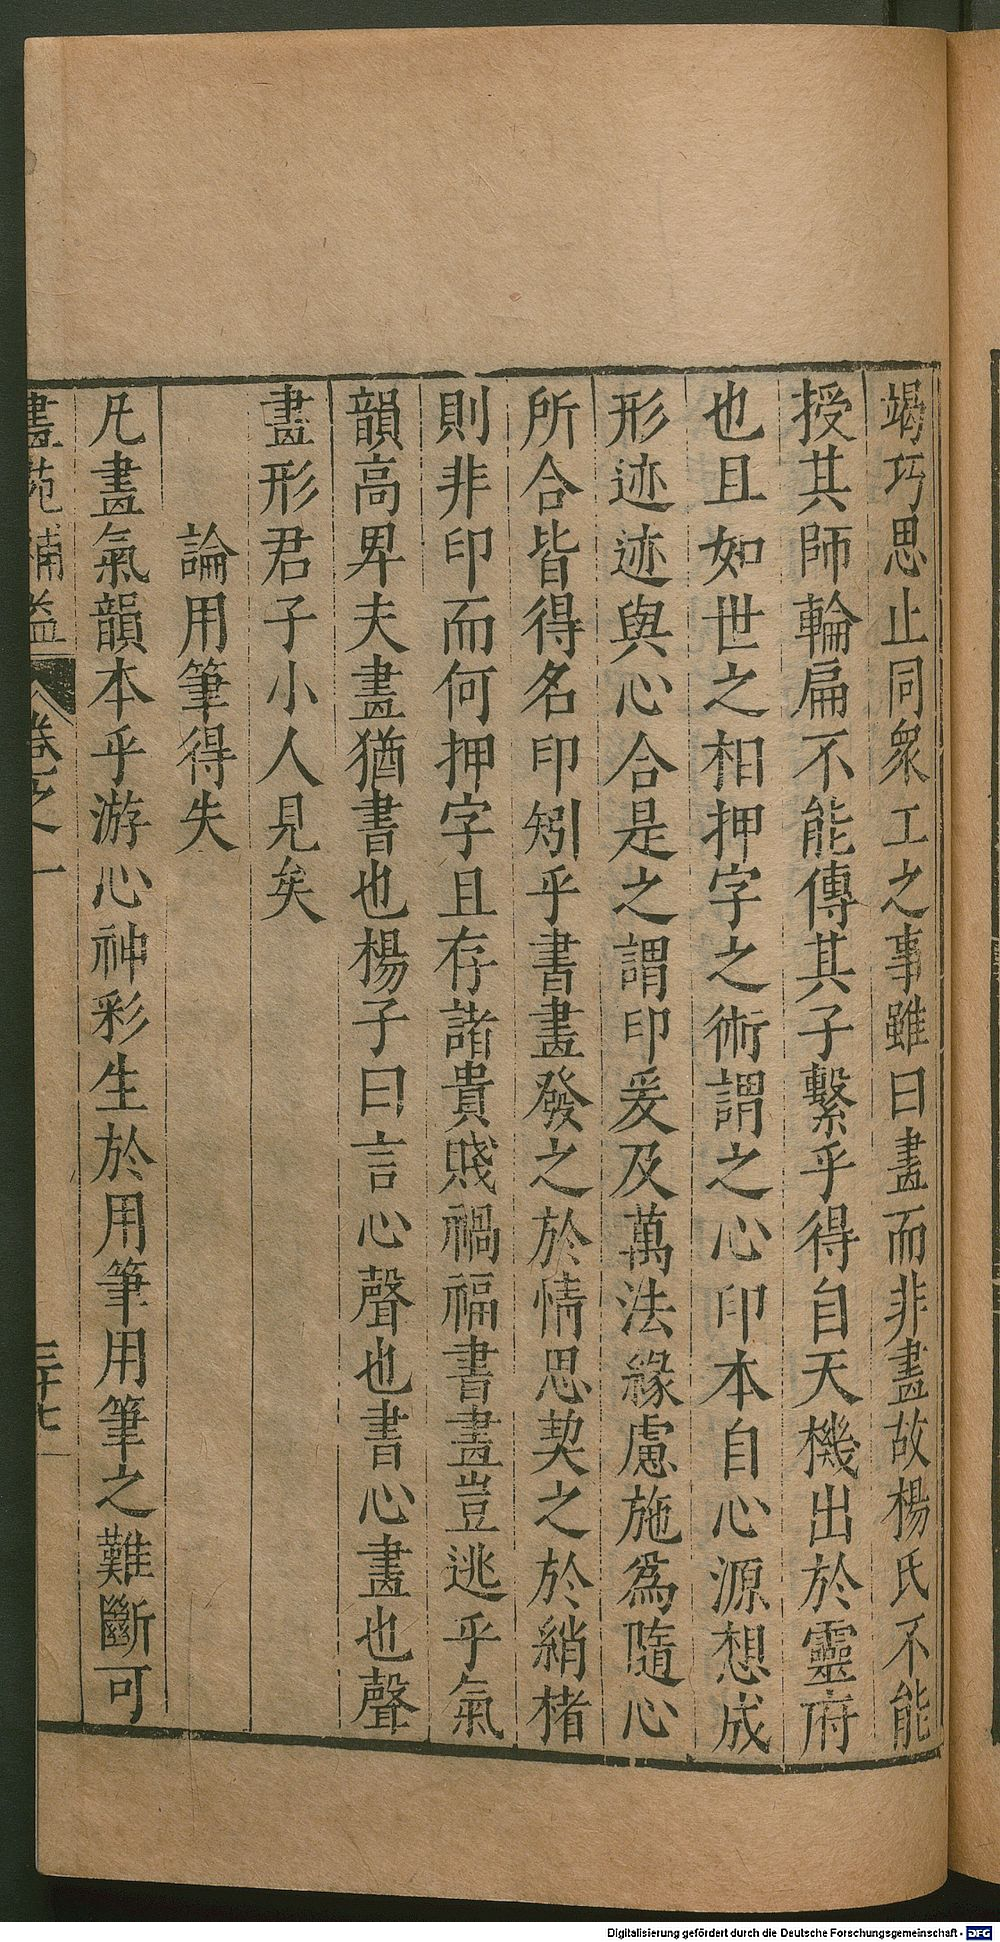 竭巧思止同衆工之事雖曰畫而非畫故楊氏不能
授其師輪扁不能傳其子繫乎得自天機出於靈府
也且如世之相押字之術謂之心印本自心源想成
形迹迹與心合是之謂印爰及萬法緣慮施爲隨心
所合皆得名印矧乎書畫發之於情思契之於綃楮
則非印而何押字且存諸貴賤禍福書畫豈逃乎氣
韻高卑夫畫猶書也楊子曰言心聲也書心畫也聲
畫形君子小人見矣
論用筆得失
凡畫氣韻本乎游心神彩生於用筆用筆之難斷可
畫苑補益 卷之一 三十七
Digitalisierung gefördert durch die Deutsche Forschungsgemeinschaft - DFG